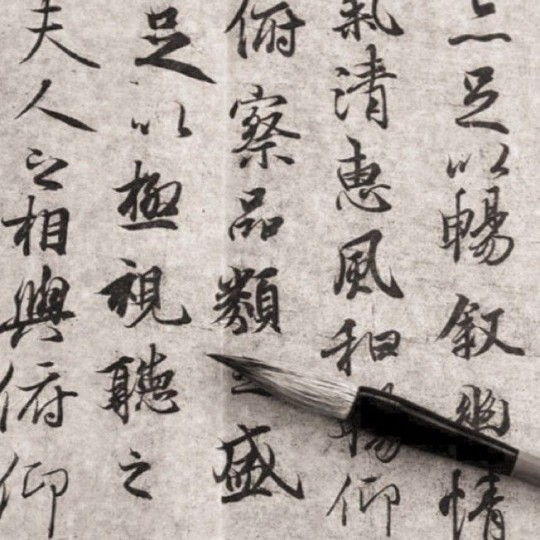 亦足以暢叙幽情
氣清惠風和暢仰
俯察品類之盛
足以極視聽之
夫人之相與俯仰